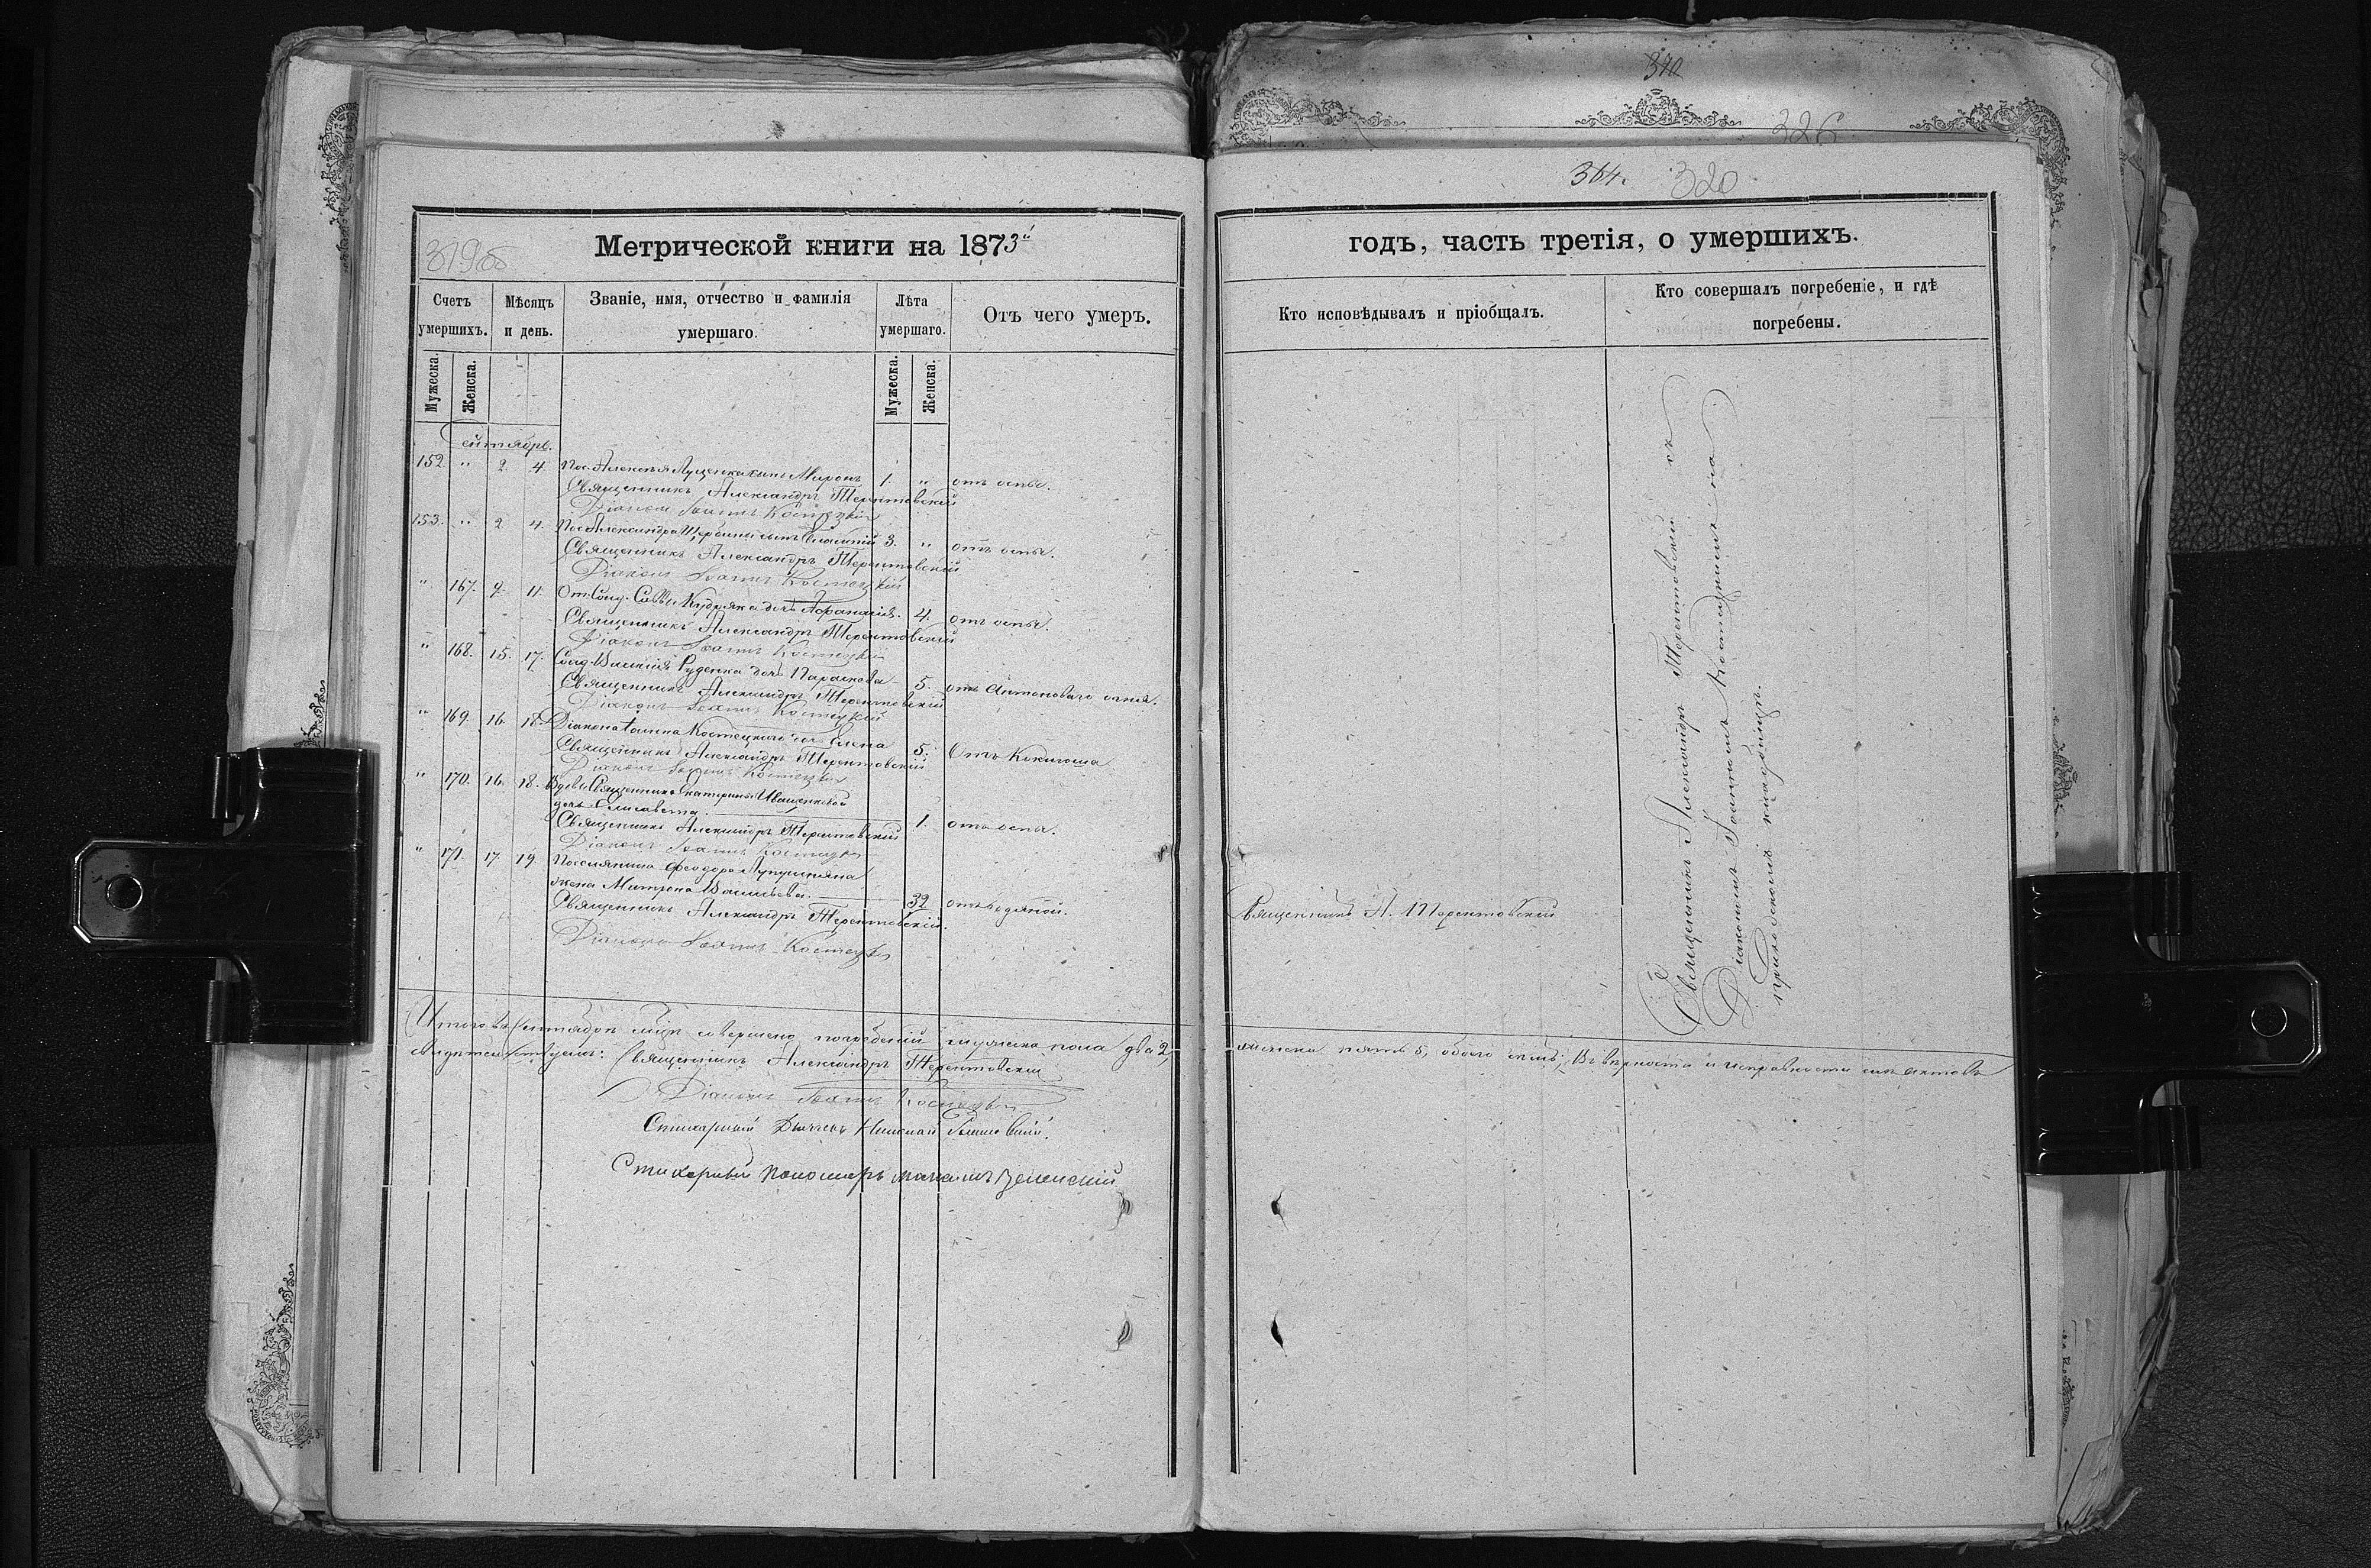 340
326
364. 320
319об
Метрической книги на 1873й
годъ, часть третія, о умершихъ.
Счетъ умершихъ.
Мѣсяцъ и день.
Званіе, имя, отчество и фамилія умершаго.
Лѣта умершаго.
Отъ чего умеръ.
Кто исповѣдывалъ и пріобщалъ.
Кто совершалъ погребеніе, и гдѣ погребены.
Мужеска.
Женска.
Мужеска.
Женска.
Сентябрь.
152. " 2. 4. Пос. Алексѣя Луценка сынъ Миронъ 1. " отъ оспы.
Священникъ Александръ Терентовскій
Діаконъ Іоаннъ Костецкій
153. " 2. 4. Пос. Александра Щербины сынъ Василій 3. " отъ оспы.
Священникъ Александръ Терентовскій
Діаконъ Іоаннъ Костецкій
" 167. 9. 11. От. Солд. Саввы Кудряка дочь 4. отъ оспы.
Священникъ Александръ Терентовскій
Діаконъ Іоаннъ Костецкій
" 168. 15. 17. Солд. Василія Руденка дочь Параскева 5. отъ Антонового огня.
Священникъ Александръ Терентовскій
Діаконъ Іоаннъ Костецкій
" 169. 16. 18. Діакона Іоанна Костецкаго дочь Елена 5. Отъ Коклюша
Священникъ Александръ Терентовскій
Діаконъ Іоаннъ Костецкій
" 170. 16. 18. Вдовы Священника Екатерины Иващенковой
дочь Елисавета. 1. отъ оспы.
Священникъ Александръ Терентовскій
Діаконъ Іоаннъ Костецкій
" 171. 17. 19. Поселянина Ѳеодора
жена Матрона Васильева. 32 отъ водяной.
Священникъ Александръ Терентовскій.
Діаконъ Іоаннъ Костецкій
Священникъ А. Терентовскій
Священникъ Александръ Терентовскій съ
Діакономъ Іоанномъ Костецкимъ на
приходскомъ кладбищѣ.
Итого въ Сентябрѣ мцѣ совершено погребеній мужеска пола два 2, женска пять 5, обоего семь; Въ вѣрности и исправности сихъ актовъ
свидѣтельствуемъ: Священникъ Александръ Терентовскій
Діаконъ Іоаннъ Костецкій
Стихарный Дьячекъ Николай
Стихарный Пономарь